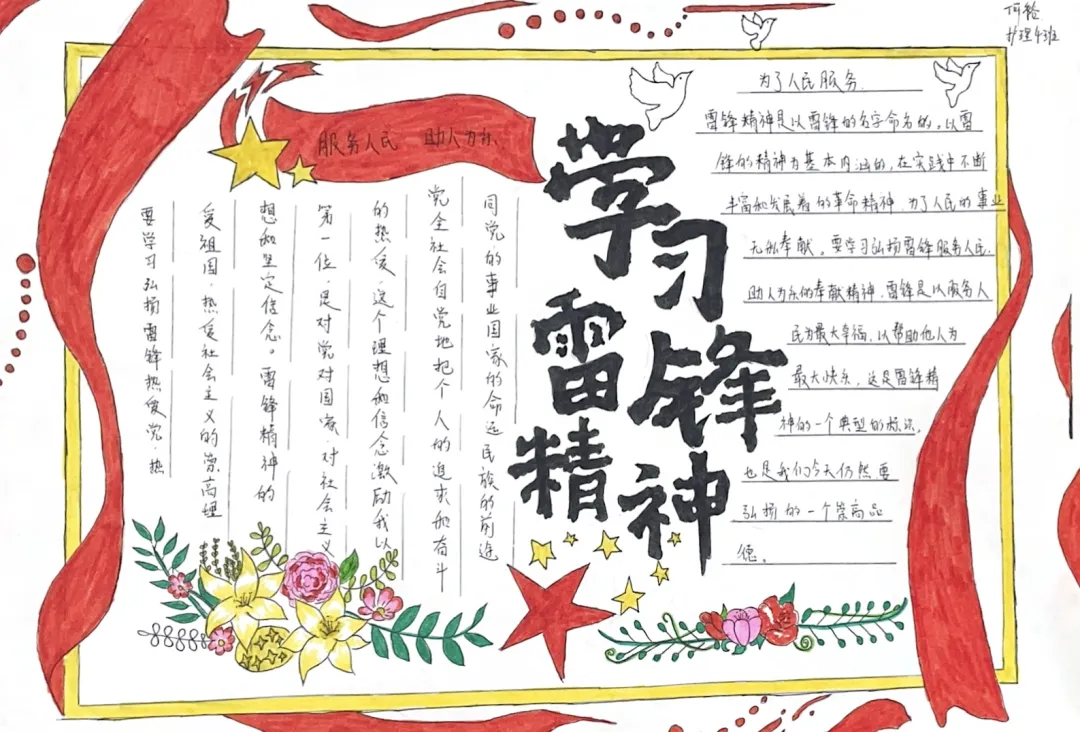 护理4班
服务人民 助人为乐
要学习弘扬雷锋热爱党,热
爱祖国,热爱社会主义的崇高理
想和坚定信念。雷锋精神的
第一位,是对党对国家,对社会主义
的热爱,这个理想和信念激励我以
党全社会自觉地把个人的追求和奋斗
同党的事业国家的命运民族的前途
学习
雷锋
精神
为了人民服务
雷锋精神是以雷锋的名字命名的,以雷
锋的精神为基本内涵的,在实践中不断
丰富和发展着的革命精神,为了人民的事业
无私奉献。要学习弘扬雷锋服务人民.
助人为乐的奉献精神.雷锋是以服务人
民为最大幸福,以帮助他人为
最大快乐,这是雷锋精
神的一个典型的标识,
也是我们今天仍然要
弘扬的一个崇高品
德。